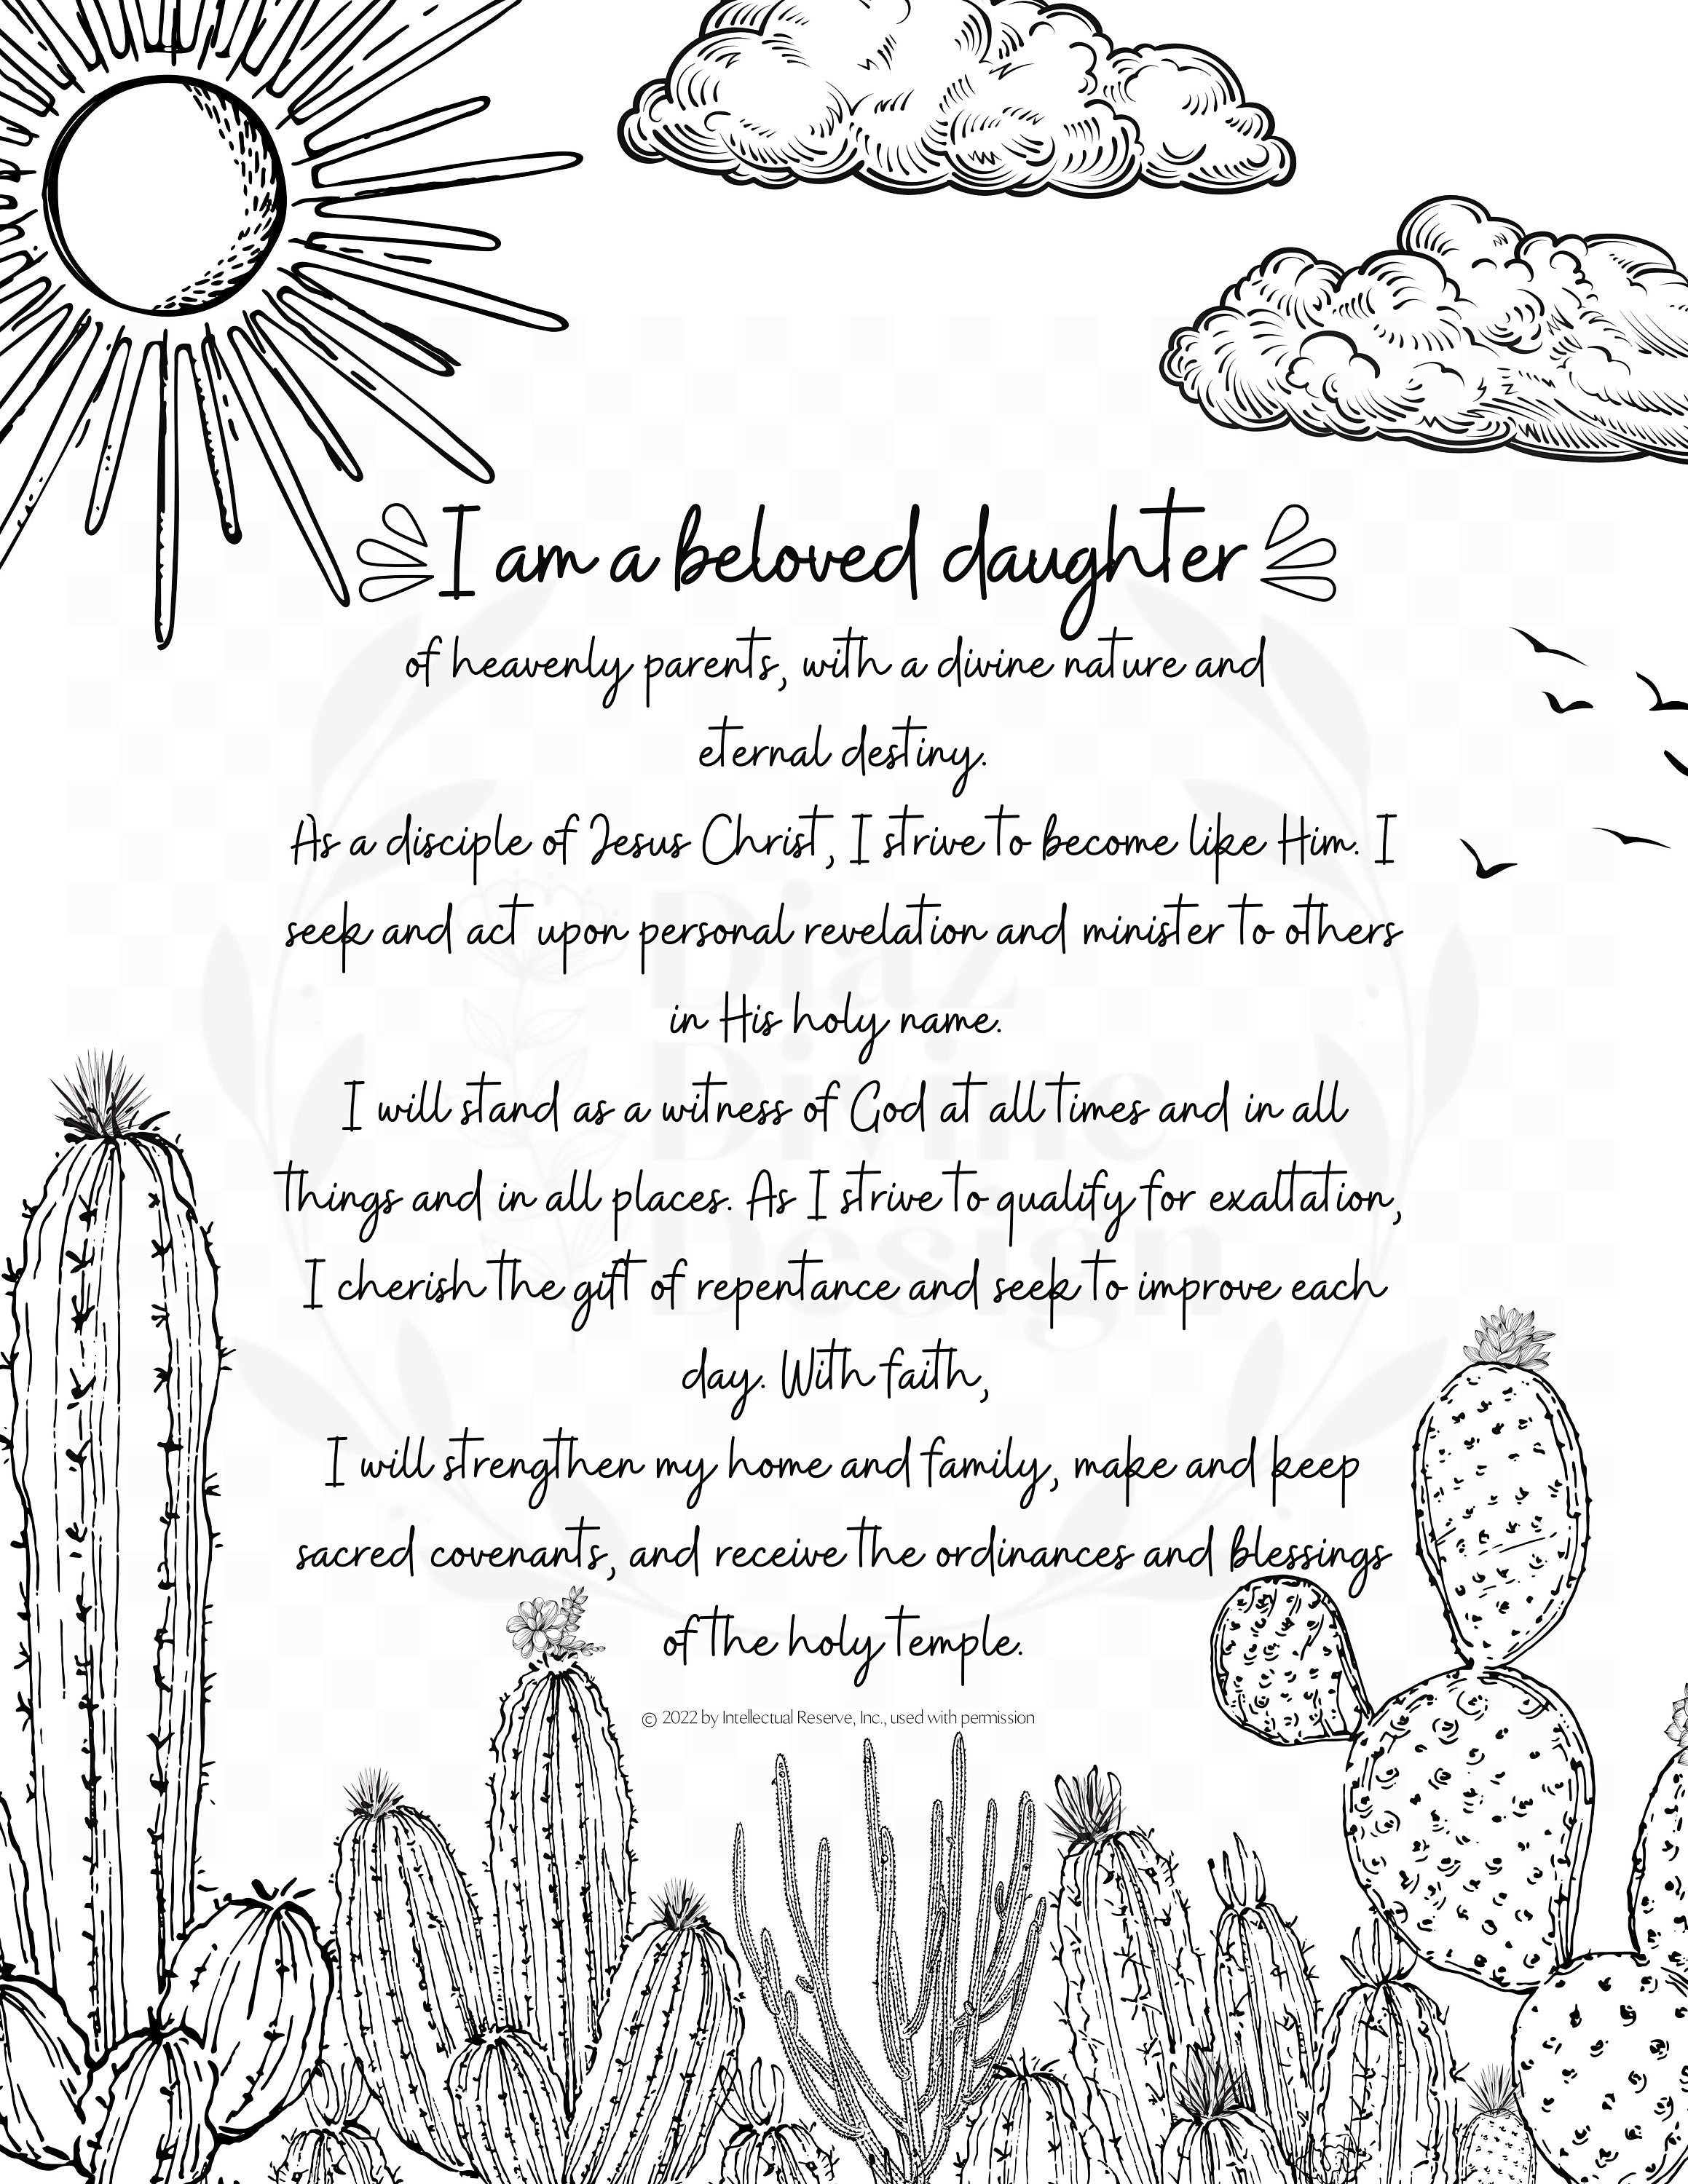 I am a beloved daughter
of heavenly parents, with a divine nature and
eternal destiny.
As a disciple of Jesus Christ, I strive to become like Him. I
seek and act upon personal revelation and minister to others
in His holy name.
I will stand as a witness of God at all times and in all
things and in all places. As I strive to qualify for exaltation,
I cherish the gift of repentance and seek to improve each
day. With faith,
I will strengthen my home and family, make and keep
sacred covenants, and receive the ordinances and blessings
of the holy temple.
© 2022 by Intellectual Reserve, Inc., used with permission
Diaz
Divine
Design